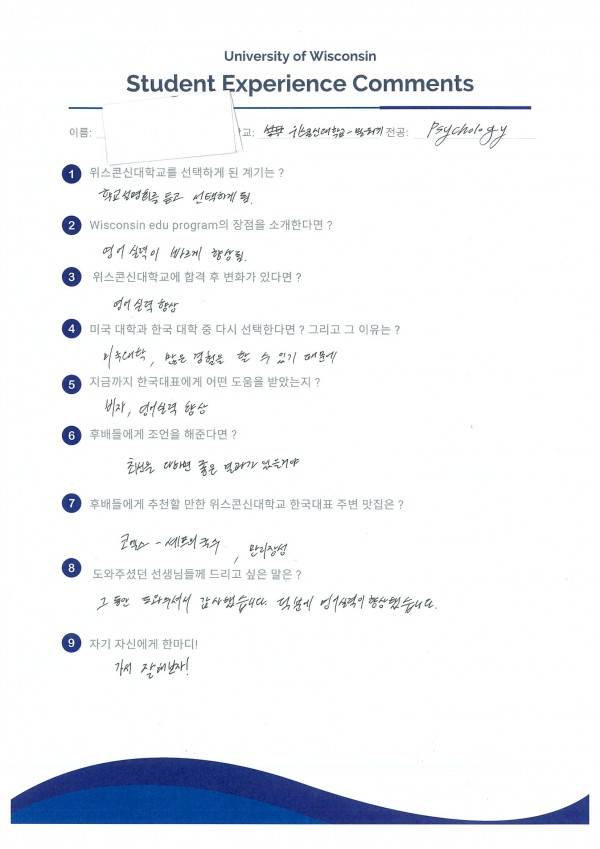 University of Wisconsin
Student Experience Comments
이름: 교: 위스콘신대학교-밀워키 전공: Psychology
1 위스콘신대학교를 선택하게 된 계기는 ?
학교설명회를 듣고 선택하게 됨.
2 Wisconsin edu program의 장점을 소개한다면 ?
영어 실력이 빠르게 향상됨.
3 위스콘신대학교에 합격 후 변화가 있다면 ?
영어 실력 향상
4 미국 대학과 한국 대학 중 다시 선택한다면 ? 그리고 그 이유는 ?
미국대학, 많은 경험을 할 수 있기 때문에
5 지금까지 한국대표에게 어떤 도움을 받았는지 ?
비자, 영어실력 향상
6 후배들에게 조언을 해준다면 ?
최선을 다하면 좋은 결과가 있을거야
7 후배들에게 추천할 만한 위스콘신대학교 한국대표 주변 맛집은 ?
코엑스 - 세트의 국수, 만리장성
8 도와주셨던 선생님들께 드리고 싶은 말은 ?
그 동안 도와주셔서 감사했습니다. 덕분에 영어실력이 향상됐습니다.
9 자기 자신에게 한마디!
가서 잘해보자!